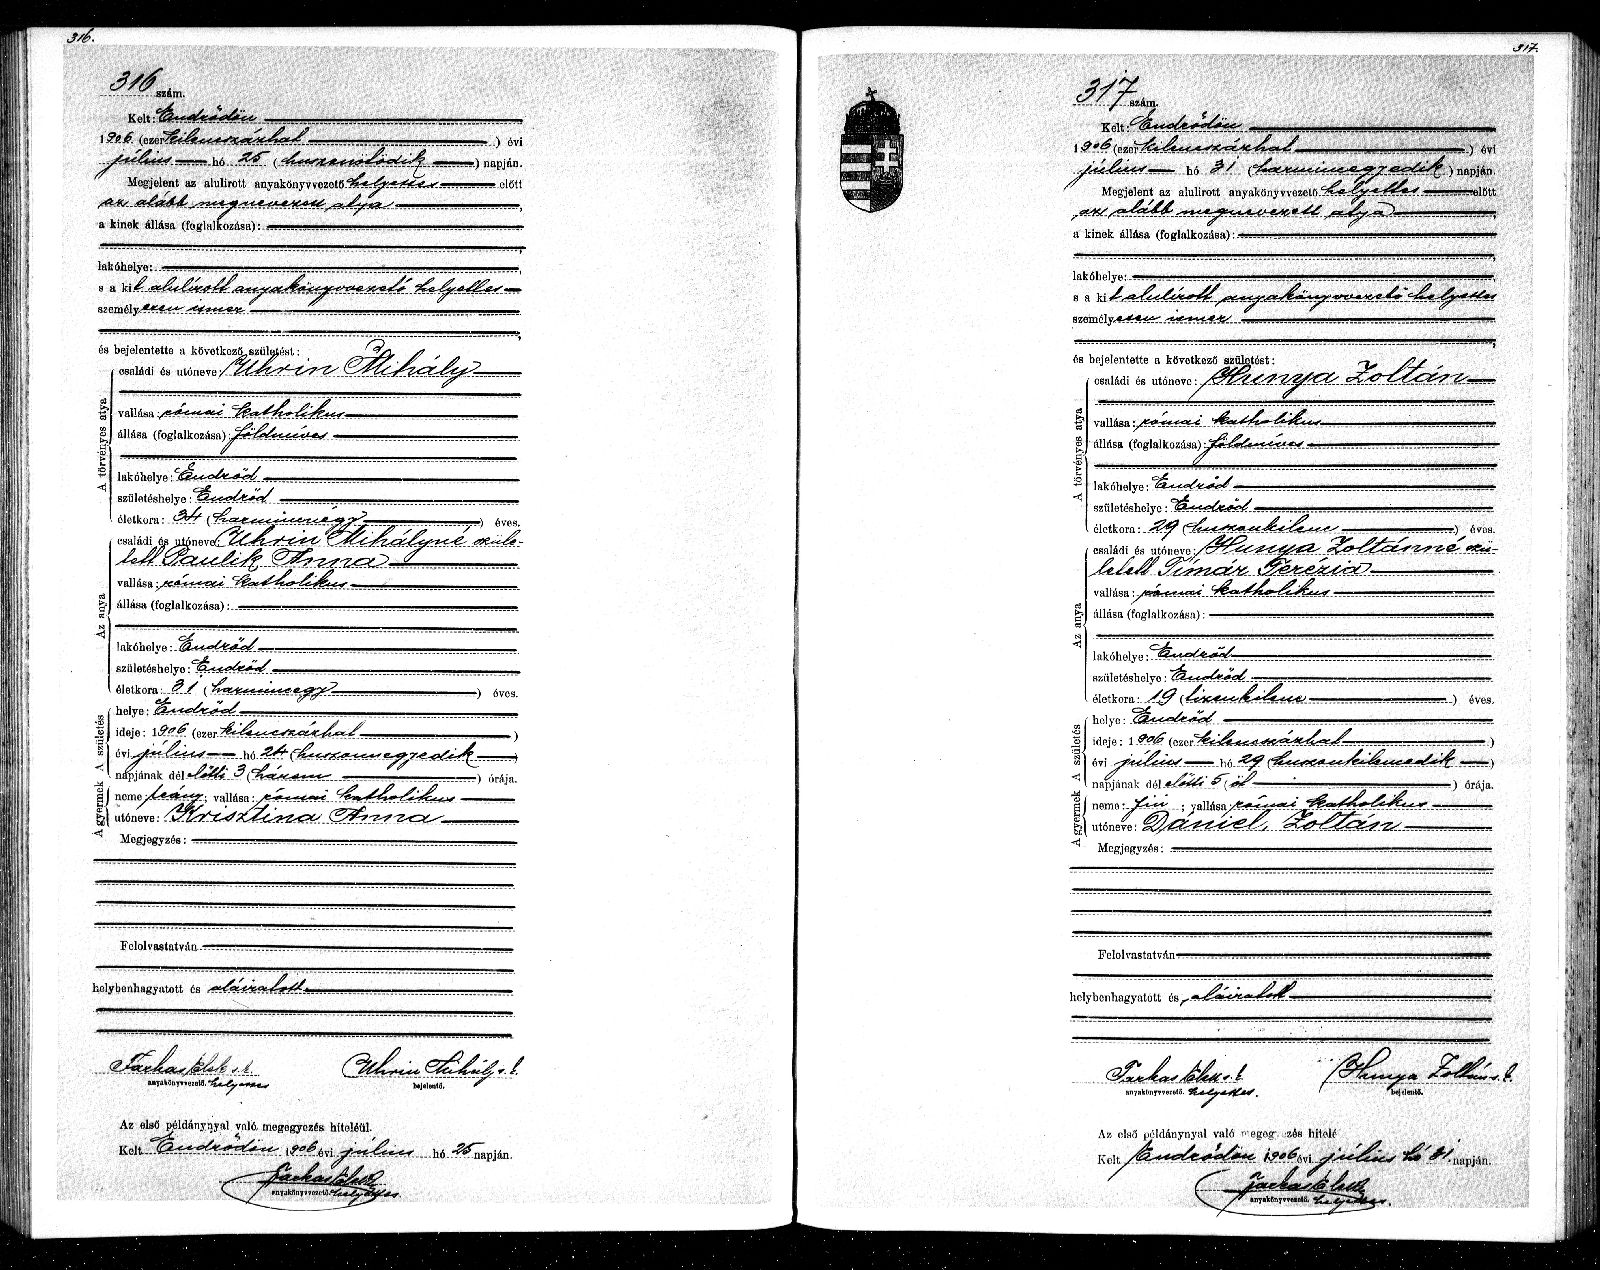 316.
316 szám.
Kelt: Endrődön
1906 (ezer kilencszázhat ) évi
július hó 25 (huszonötödik ) napján.
Megjelent az alulirott anyakönyvvezető helyettes előtt
az alább megnevezett atya ,
a kinek állása (foglalkozása):
lakóhelye:
s a kit alulírott anyakönyvvezető helyettes
személyesen ismer
és bejelentette a következő születést:
A törvényes atya
családi és utóneve: Uhrin Mihály
vallása: római katholikus
állása (foglalkozása): földmíves
lakóhelye: Endrőd
születéshelye: Endrőd
életkora: 34 (harmincnégy ) éves.
Az anya
családi és utóneve: Uhrin Mihályné szüle-
tett Paulik Anna
vallása: római katholikus
állása (foglalkozása):
lakóhelye: Endrőd
születéshelye: Endrőd
életkora: 31 (harmincegy ) éves.
A gyermek A születés
helye: Endrőd
ideje: 1906 (ezer kilencszázhat )
évi július hó 24 (huszonnegyedik )
napjának dél előtti 3 (három ) órája.
neme: leány; vallása: római katholikus
utóneve: Krisztina Anna
Megjegyzés:
Felolvastatván
helybenhagyatott és aláiratott
Farkas Elek s. k. Uhrin Mihály s. k.
anyakönyvvezető. helyettes bejelentő.
Az első példánynyal való megegyezés hiteléül.
Kelt Endrődön 1906 évi július hó 25 napján.
Farkas Elek
anyakönyvvezető. helyettes
317.
317 szám.
Kelt: Endrődön
1906 (ezer kilencszázhat ) évi
július hó 31 (harmincegyedik ) napján.
Megjelent az alulirott anyakönyvvezető helyettes előtt
az alább megnevezett atya
a kinek állása (foglalkozása):
lakóhelye:
s a kit alulírott anyakönyvvezető helyettes
személyesen ismer
és bejelentette a következő születést:
A törvényes atya
családi és utóneve: Hunya Zoltán
vallása: római katholikus
állása (foglalkozása): földmíves
lakóhelye: Endrőd
születéshelye: Endrőd
életkora: 29 (huszonkilenc ) éves.
Az anya
családi és utóneve: Hunya Zoltánné szü-
letett Tímár Terézia
vallása: római katholikus
állása (foglalkozása):
lakóhelye: Endrőd
születéshelye: Endrőd
életkora: 19 (tizenkilenc ) éves.
A gyermek A születés
helye: Endrőd
ideje: 1906 (ezer kilencszázhat )
évi július hó 29 (huszonkilencedik )
napjának dél előtti 5 (öt ) órája.
neme: fiú ; vallása: római katholikus
utóneve: Dániel, Zoltán
Megjegyzés:
Felolvastatván
helybenhagyatott és aláiratott
Farkas Elek s. k. Hunya Zoltán s. k.
anyakönyvvezető. helyettes. bejelentő.
Az első példánynyal való megegyezés hitelé
Kelt Endrődön 1906 évi július hó 31 napján.
Farkas Elek
anyakönyvvezető. helyettes.